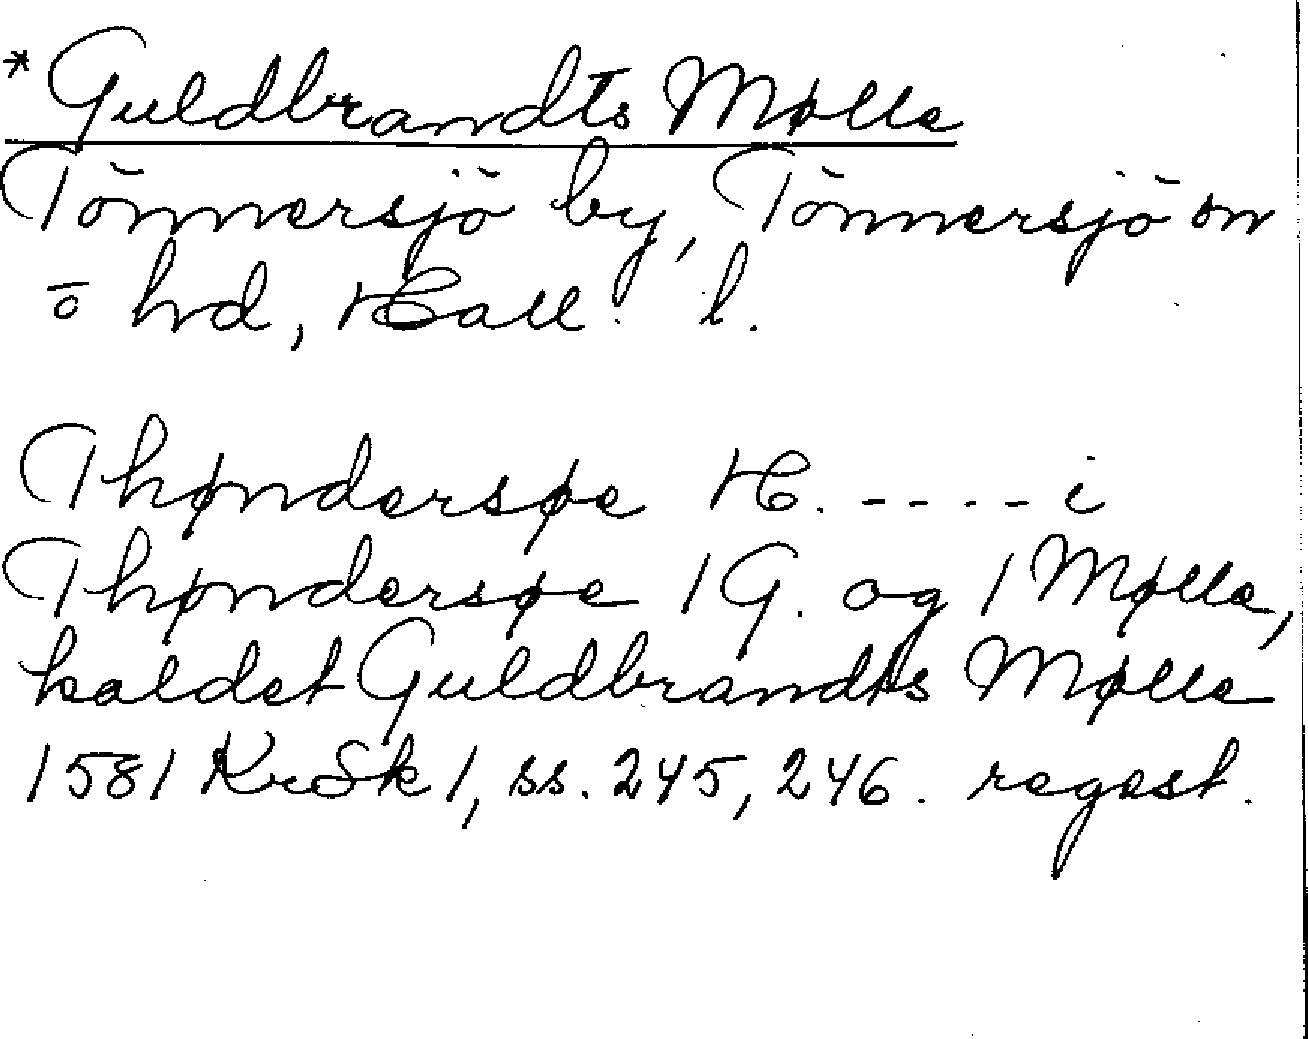 *Guldbrandts Mølle
Tönnersjö by, Tönnersjö sn
o hd, Hall. l.
Thøndersøe H. ---- i
Thøndersøe 1 G. og 1 Mølle,
kaldet Guldbrandts Mølle
1581 KrSk 1, ss. 245, 246. regest.